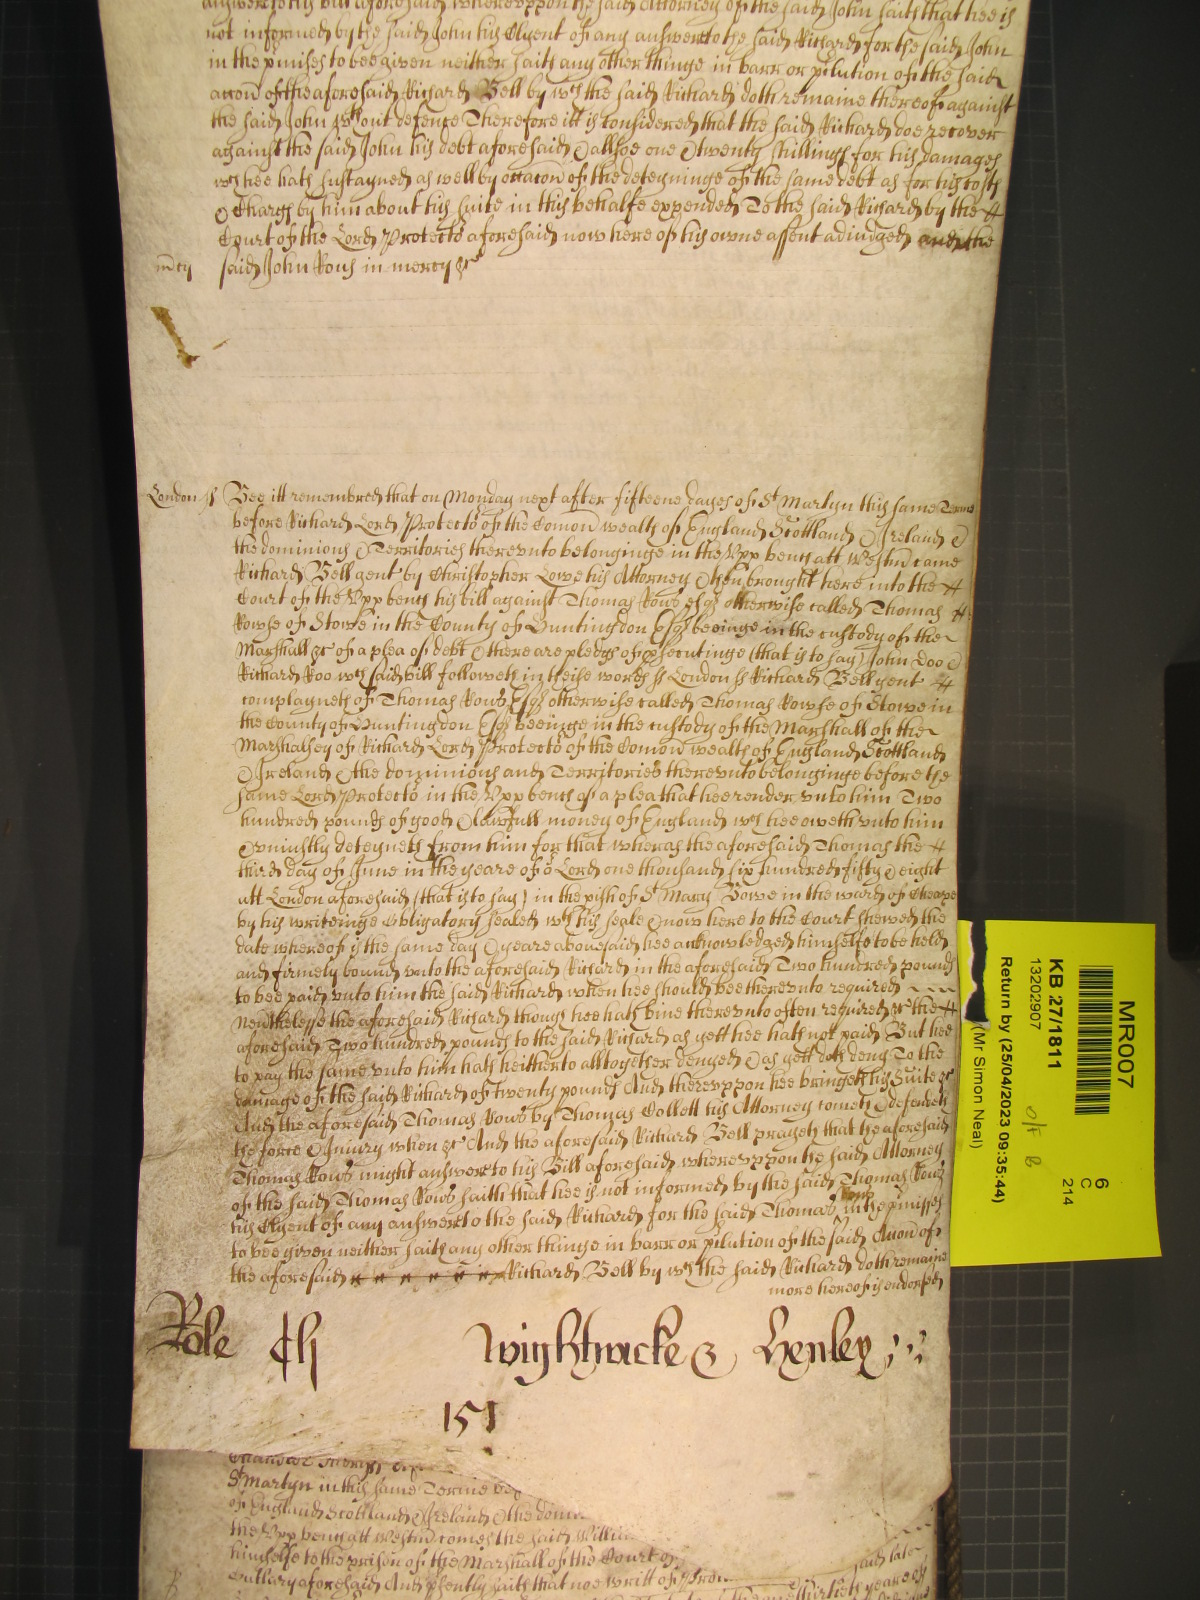 answere to his bill aforesaid Wherevppon the said Attorney of the said John saith that hee is
not informed by the said John his Clyent of any answere to the said Richard for the said John
in the pmisses to bee given neither saith any other thinge in barr or pclution of the said
accon of the aforesaid Richard Bell by wch the said Richard doth remaine thereof against
the said John wthout defence Therefore itt is considered that the said Richard doe recover
against the said John his debt aforesaid & allsoe one & twenty shillings for his damages
wch hee hath sustayned as well by occacon of the deteyninge of the same debt as for his costs
& Chargs by him about his suite in this behalfe expended To the said Richard by the
Court of the Lord Protector aforesaid now here of his owne assent adiudged And the
mcy said John Rous in mercy &c
London ss Bee itt remembred that on Monday next after fifteene dayes of St Martyn this same Terme
before Richard Lord Protector of the Comon wealth of England Scottland & Ireland &
the dominions & Territories therevnto belonginge in the Vpp bench att Westm came
Richard Bell gent by Christopher Lowe his Attorney & then brought here into the
Court of the Vpp bench his bill against Thomas Rous Esqr otherwise called Thomas
Rowse of Stowe in the County of Huntingdon Esqr beeinge in the custody of the
Marshall &c of a plea of debt & there are pledgs of psecutinge (that is to say) John Doo &
Richard Roo wch said bill followeth in theise words ss London ss Richard Bell gent
complayneth of Thomas Rous Esqr otherwise called Thomas Rowse of Stowe in
the County of Huntingdon Esqr beeinge in the custody of the Marshall of the
Marshalsey of Richard Lord Protector of the Comon wealth of England Scottland
& Ireland & the dominions and Territories therevnto belonginge before the
same Lord Protector in the Vpp bench of a plea that hee render vnto him Two
hundred pounds of good & lawfull money of England wch hee oweth vnto him
& vniustly deteyneth from him for that wheras the aforesaid Thomas the
third day of June in the yeare of or Lord one thousand six hundred fifty & eight
att London aforesaid (that is to say) in the pish of St Mary Bowe in the ward of Cheape
by his writeinge Obligatory sealed wth his seale & now here to the Court shewed the
date whereof is the same day & yeare abovesaid hee acknowledged himselfe to be held
and firmely bound vnto the aforesaid Richard in the aforesaid Two hundred pounds
to bee paid vnto him the said Richard when hee should bee therevnto required
Nevthelesse the aforesaid Thomas though hee hath bine therevnto often required &c the
aforesaid Two hundred pounds to the said Richard as yett hee hath not paid But hee
to pay the same vnto him hath heitherto alltogether denyed & as yett doth deny To the
damage of the said Richard of twenty pounds And therevppon hee bringeth his Suite &c
And the aforesaid Thomas Rous by Thomas Collett his Attorney cometh & defendeth
the force & Iniury when &c And the aforesaid Richard Bell prayeth that the aforesaid
Thomas Rous might answere to his Bill aforesaid wherevppon the said Attorney
of the said Thomas Rous saith that hee is not informed by the said Thomas Rous
his Clyent of any answere to the said Richard for the said Thomas Rous in the pmisses
to bee given neither saith any other thinge in barr or pclution of the said Accon of
the aforesaid Richard Bell by wch the said Richard doth remaine
more hereof is endorsed
Role Ch Wightwicke & Henley
151
St Martyn in this same Terme
of England Scottland & Ireland & the domi
the Vpp bench att Westm comes the said Willi
himselfe to the prison of the Marshall of the Court of
Outlary aforesaid And psently saith that noe writt of
said late
yeare of
MR007
KB 27/1811
13202907
Return by (25/04/2023 09:35:44)
(Mr Simon Neal)
6
C
214